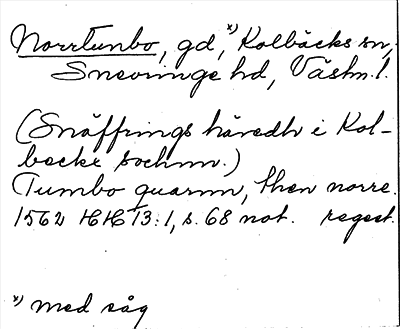 Norrtunbo, gd,ˣ⁾ Kolbäcks sn,
Snevringe hd, Västm. l.
(Snäffrings häredh i Kol-
becke sochnn.)
Tumbo quarnn, then norre.
1562 HH 13:1, s. 68 not. regest.
ˣ⁾ med såg